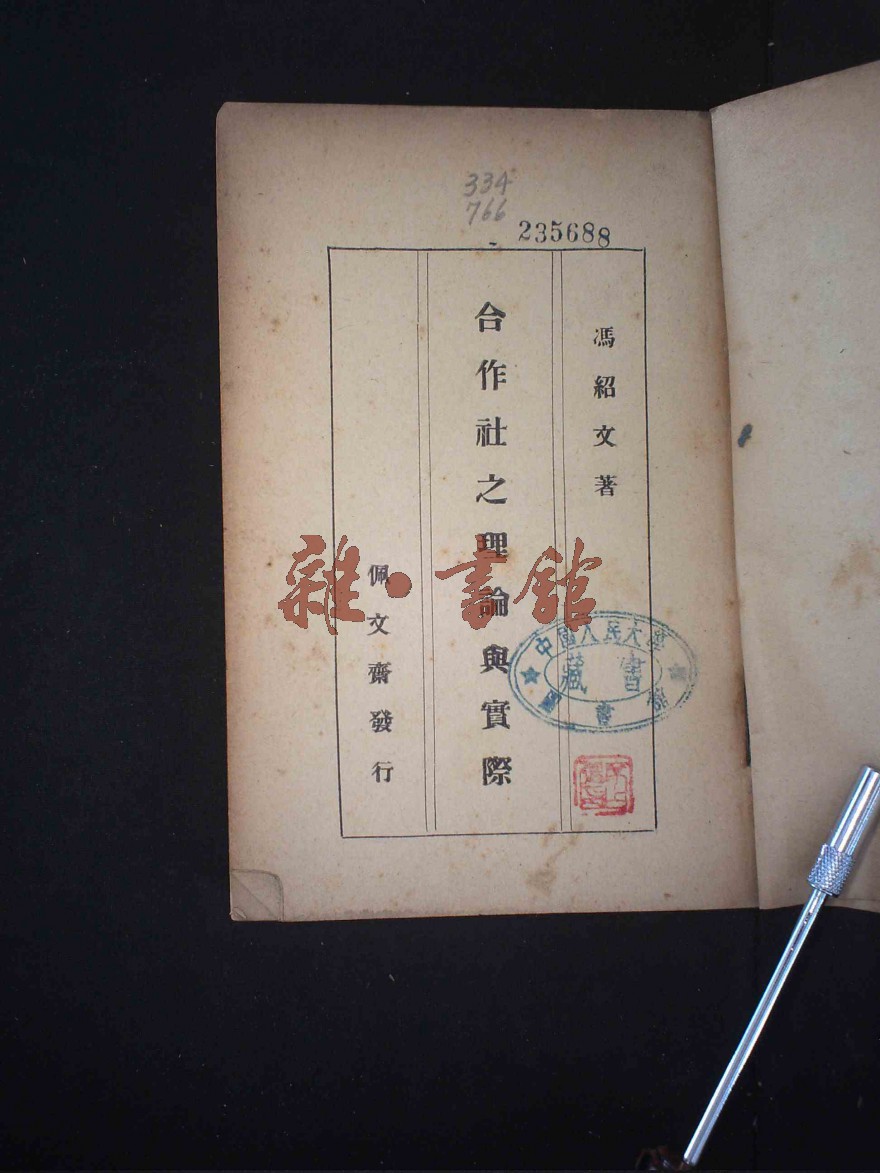 334
766
235688
馮紹文著
合作社之理論與實際
佩文齋發行
雜·書館
中國人民大學
藏書
圖書館